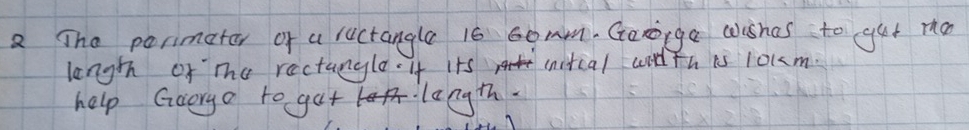 2 The perimeter of a rectangle is 60mm. George wishes to get the
length of the rectangle. If its initial width is 10km.
help George to get length.